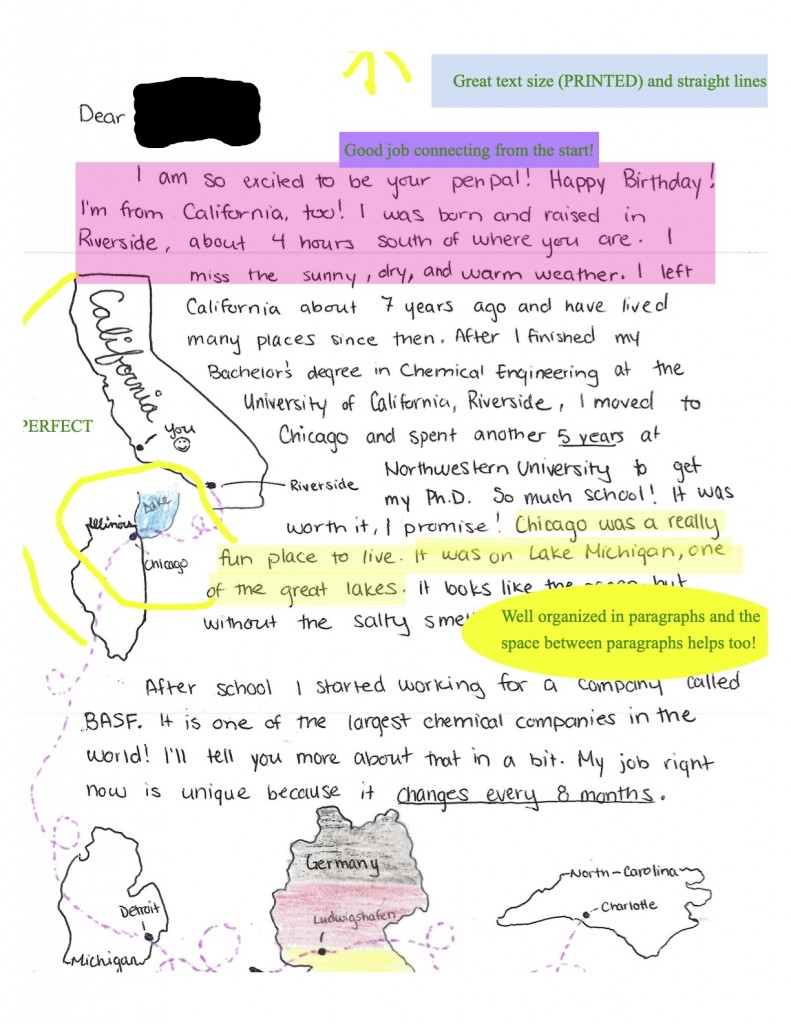 Great text size (PRINTED) and straight lines
Dear
Good job connecting from the start!
I am so excited to be your penpal! Happy Birthday!
I'm from California, too! I was born and raised in
Riverside, about 4 hours south of where you are. I
miss the sunny, dry, and warm weather. I left
California about 7 years ago and have lived
many places since then. After I finished my
Bachelor's degree in Chemical Engineering at the
University of California, Riverside, I moved to
Chicago and spent another 5 years at
Northwestern University to get
my Ph.D. So much school! It was
worth it, I promise! Chicago was a really
fun place to live. It was on Lake Michigan, one
of the great lakes. It looks like the ocean but
without the salty
California
You
PERFECT
Riverside
Lake
Illinois
Chicago
Well organized in paragraphs and the
space between paragraphs helps too!
After school I started working for a company called
BASF. It is one of the largest chemical companies in the
world! I'll tell you more about that in a bit. My job right
now is unique because it changes every 8 months.
Detroit
Michigan
Germany
Ludwigshafen
North-Carolina
Charlotte